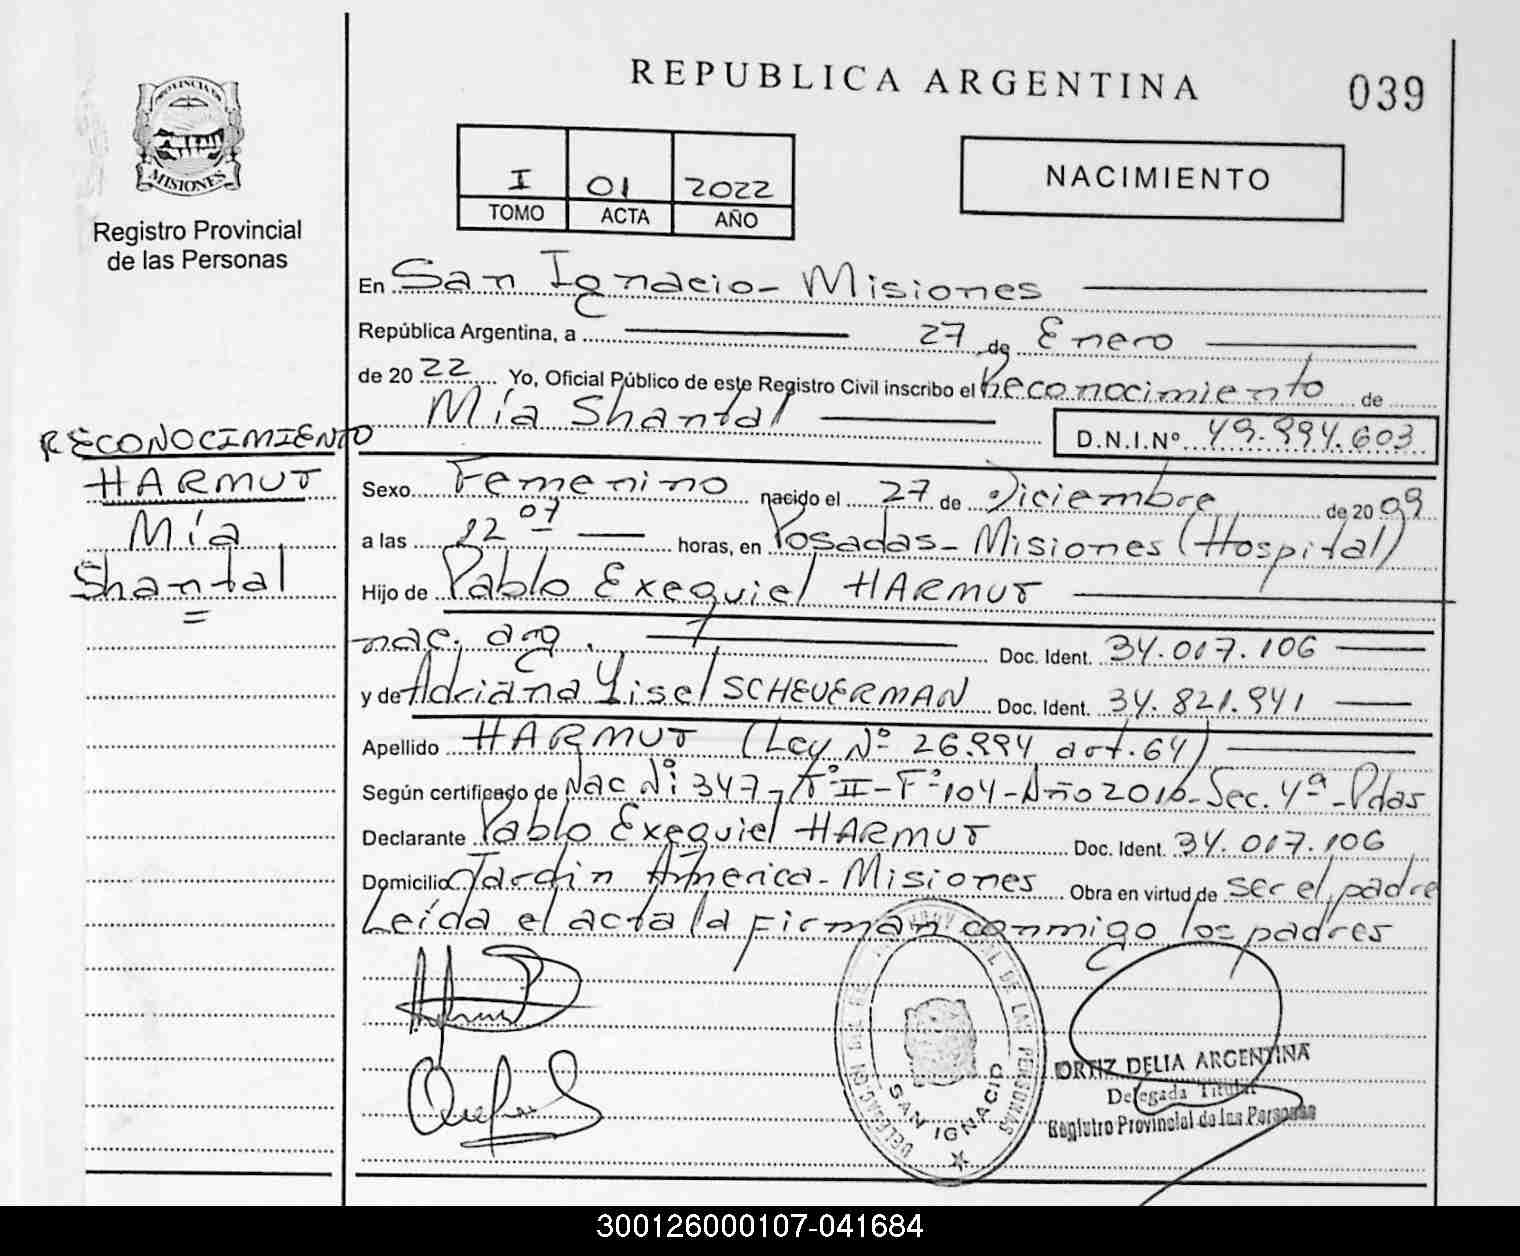 REPUBLICA ARGENTINA
039
PROVINCIA DE
MISIONES
Registro Provincial
de las Personas
I 01 2022
TOMO ACTA AÑO
NACIMIENTO
En San Ignacio - Misiones
República Argentina, a 27 de Enero
de 20 22 Yo, Oficial Público de este Registro Civil inscribo el Reconocimiento de
Mía Shantal D.N.I.Nº 49.994.603
RECONOCIMIENTO
HARMUT
Mía
Shantal
Sexo Femenino nacido el 27 de Diciembre de 20 09
a las 12 07 horas, en Posadas - Misiones (Hospital)
Hijo de Pablo Exequiel HARMUT
nac. arg. Doc. Ident. 34.017.106
y de Adriana Yisel SCHEUERMAN Doc. Ident. 34.821.941
Apellido HARMUT (Ley Nº 26.994 art. 64)
Según certificado de Nac Nº 347 - Tº II - Fº 104 - Año 2010 - Sec. 4ª - Pdas
Declarante Pablo Exequiel HARMUT Doc. Ident. 34.017.106
Domicilio Jardín América - Misiones Obra en virtud de ser el padre
Leída el acta la firman conmigo los padres
SAN IGNACIO
ORTIZ DELIA ARGENTINA
Delegada Titular
Registro Provincial de las Personas
300126000107-041684